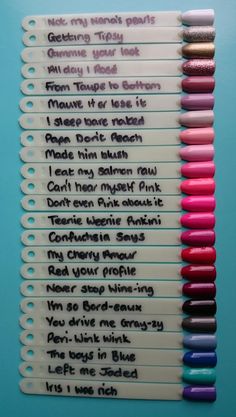 Not my Nana's pearls
Getting Tipsy
Gammie your look
All day I Rosé
From Taupe to Bottom
Mauve it or lose it
I sleep bare naked
Papa Don't Peach
Made him blush
I eat my salmon raw
Can't hear myself Pink
Don't even Pink about it
Teenie Weenie Pinkini
Confuchsia Says
My Cherry Amour
Red your profile
Never stop Wine-ing
I'm so Bord-eaux
You drive me Gray-zy
Peri-Wink Wink
The boys in Blue
Left me Jaded
Iris I was rich